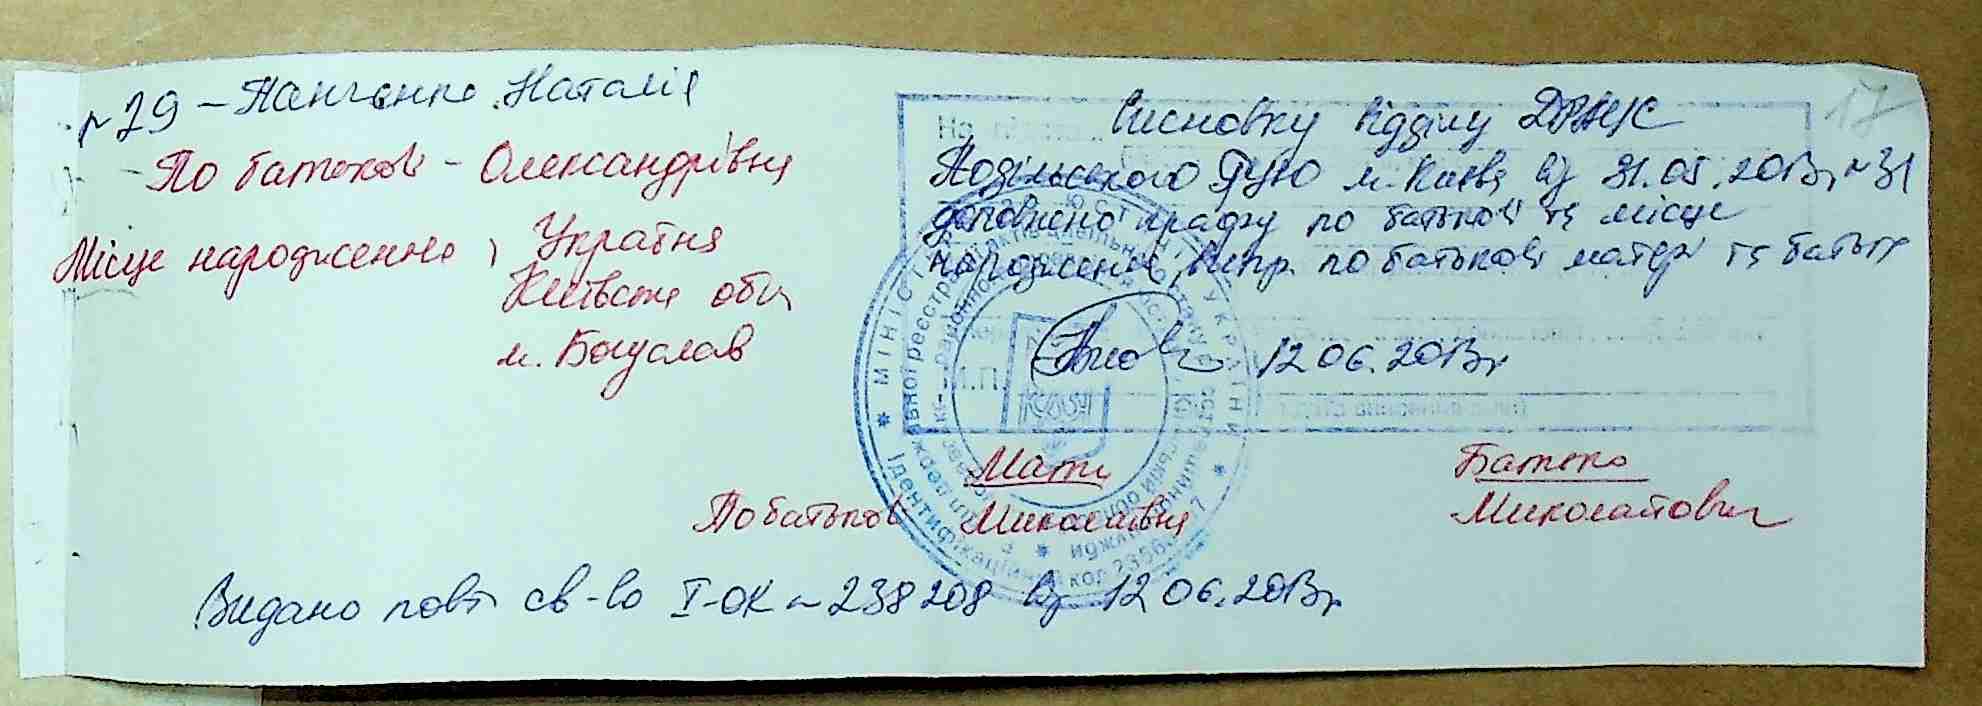 № 29 – Панченко Наталія
– По батькові – Олександрівна
Місце народження, Україна
Київська обл
м. Богуслав
17
Висновку відділу ДРАЦС
Подільського РУЮ м. Києва від 31.05.2013р №31
доповнено графу по батькові та місце
народження, випр. по батькові матері та батька
12.06.2013р
Мати
Батько
По батькові Миколаївна
Миколайович
Видано повт св-во І-ОК № 238208 від 12.06.2013р.
МІНІСТ
УКРАЇНИ
Ідентифікаційний код